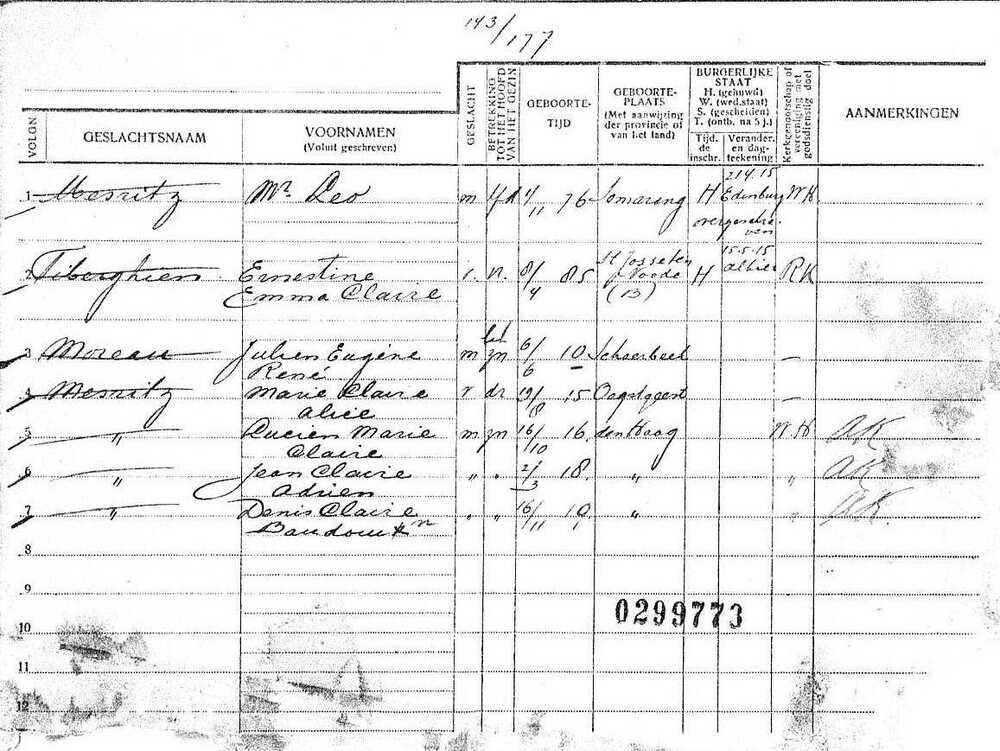 143/177
VOLGN
GESLACHTSNAAM
VOORNAMEN
(Voluit geschreven)
GESLACHT
BETREKKING TOT HET HOOFD VAN HET GEZIN
GEBOORTE-
TIJD
GEBOORTE-
PLAATS
(Met aanwijzing
der provincie of
van het land)
BURGERLIJKE
STAAT
H. (gehuwd)
W. (wed.staat)
S. (gescheiden)
T. (ontb. na 5 j.)
Tijd.
de
inschr.
Verander.
en dag-
teekening
Kerkgenootschap of
vereeniging met
godsdienstig doel
AANMERKINGEN
1 Mesritz Mr. Leo m hfd 4/11 76 Semarang H 21.4.15 Edinburg WH
overgeschre-
ven
2 Tiberghien Ernestine v. vr. 8/4 85 St Josse ten Noode (B) H 15.5.15 RK
Emma Claire
3 Moreau Julien Eugène m zn 6/6 10 Schaerbeek —
René
4 Mesritz Marie Claire v dr 19/8 15 Oegstgeest —
Alice
5 " Lucien Marie m zn 16/10 16 den Haag WH AK
Claire
6 " Jean Claire " " 2/3 18 " " AK
Adrien
7 " Denis Claire " " 16/11 19 " " AK.
Baudouin
8
9
0299773
10
11
12